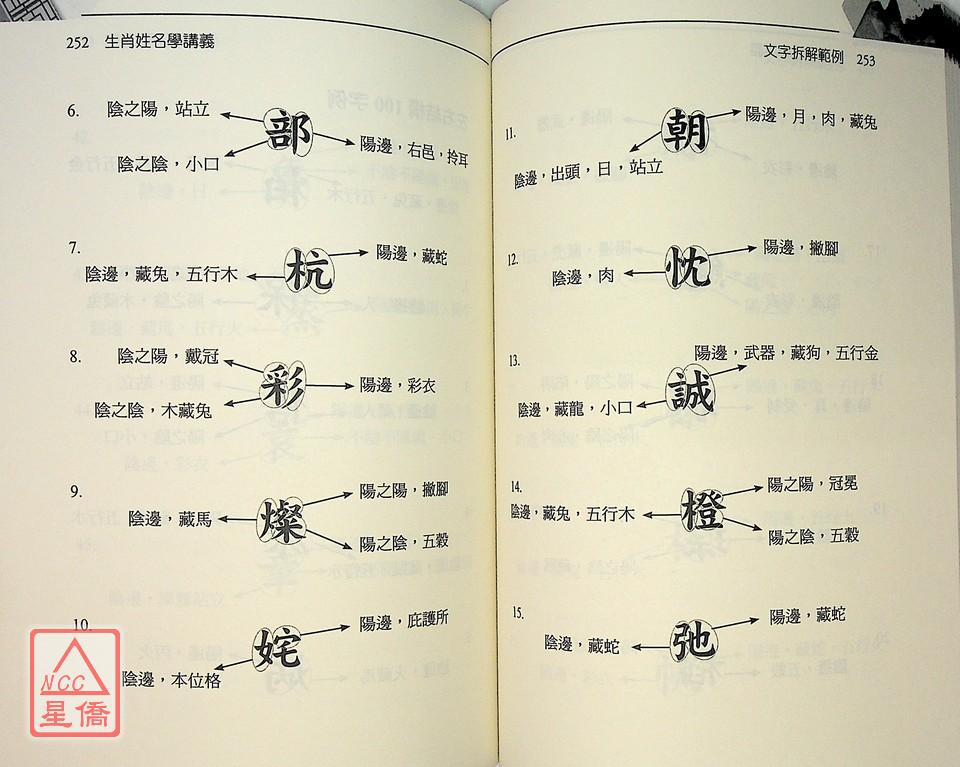 252 生肖姓名學講義
6.
陰之陽，站立
部
陽邊，右邑，拎耳
陰之陰，小口
7.
陽邊，藏蛇
杭
陰邊，藏兔，五行木
8.
陰之陽，戴冠
彩
陽邊，彩衣
陰之陰，木藏兔
9.
陽之陽，撇腳
燦
陰邊，藏馬
陽之陰，五穀
10.
陽邊，庇護所
姹
陰邊，本位格
NCC
星僑
文字拆解範例 253
11.
陽邊，月，肉，藏兔
朝
陰邊，出頭，日，站立
12.
陽邊，撇腳
忱
陰邊，肉
13.
陽邊，武器，藏狗，五行金
誠
陰邊，藏龍，小口
14.
陽之陽，冠冕
橙
陰邊，藏兔，五行木
陽之陰，五穀
15.
陽邊，藏蛇
弛
陰邊，藏蛇